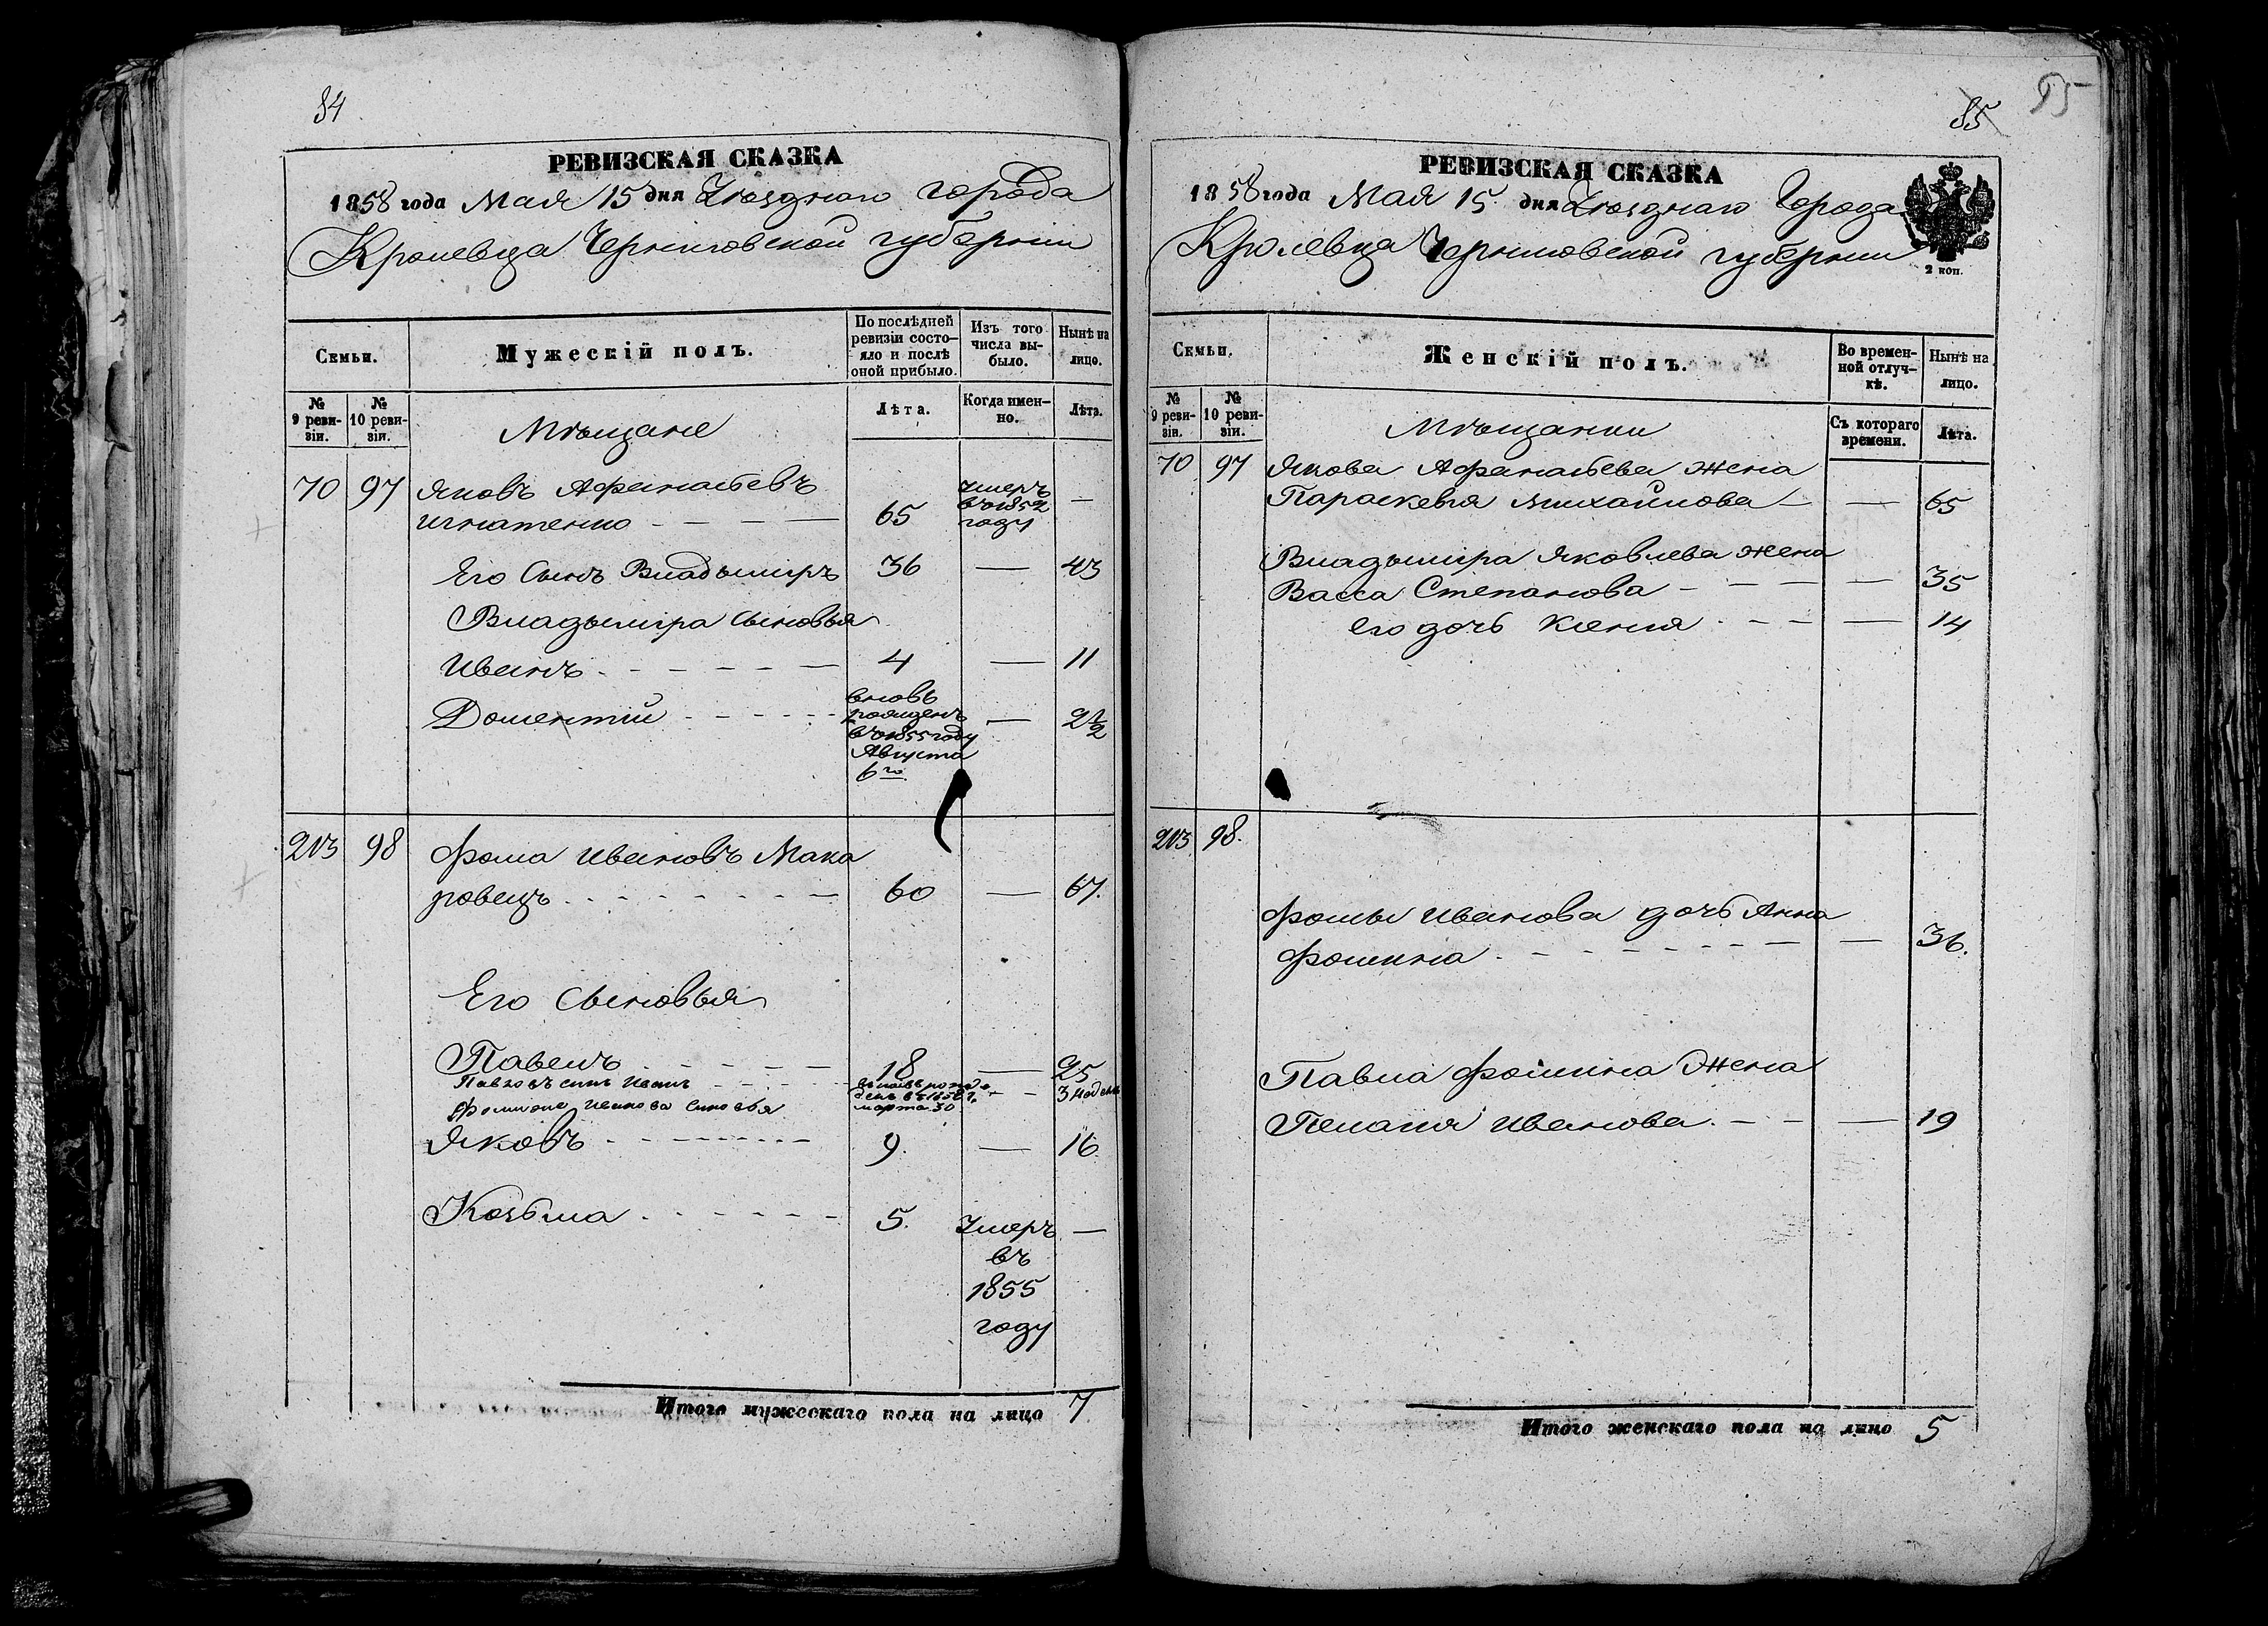 84
РЕВИЗСКАЯ СКАЗКА
1858 года Мая 15 дня Уѣзднаго города
Кролевца Черниговской губерніи
Семьи.
Мужескій полъ.
По послѣдней ревизіи состояло и послѣ оной прибыло.
Изъ того числа выбыло.
Нынѣ на лицо.
№ 9 ревизіи.
№ 10 ревизіи.
Мѣщане
Лѣта.
Когда именно.
Лѣта.
70 97 Яковъ Афанасьевъ
Игнатенко 65 умеръ въ 1852 году —
Его Сынъ Владымиръ 36 — 43
Владымира Сыновья
Иванъ 4 — 11
Доментій вновь рожденъ въ 1855 году Августа 6го — 2 1/2
203 98 Фома Ивановъ Мака
ровецъ 60 — 67.
Его Сыновья
Павелъ 18 — 25
Павловъ сынъ Иванъ вновь рожденъ в 1858 г. марта 30 — 3 недели
Фомы Иванова Сыновья
Яковъ 9. — 16.
Козьма 5. Умеръ въ 1855 году —
Итого мужескаго пола на лицо 7
85
РЕВИЗСКАЯ СКАЗКА
1858 года Мая 15. дня Уѣзднаго Города
Кролевца Черниговской губерніи
2 коп.
Семьи.
Женскій полъ.
Во временной отлучкѣ.
Нынѣ на лицо.
№ 9 ревизіи.
№ 10 ревизіи.
Мѣщанки
Съ котораго времени.
Лѣта.
70 97 Якова Афанасьева жена
Параскевія Михайлова — 65
Владымира Яковлева жена
Васса Степанова — 35
его дочь Ксенія — 14
203 98.
Фомы Иванова дочь Анна
Фомина — 36.
Павла Фомина Жена
Пелагія Иванова — 19
Итого женскаго пола на лицо 5